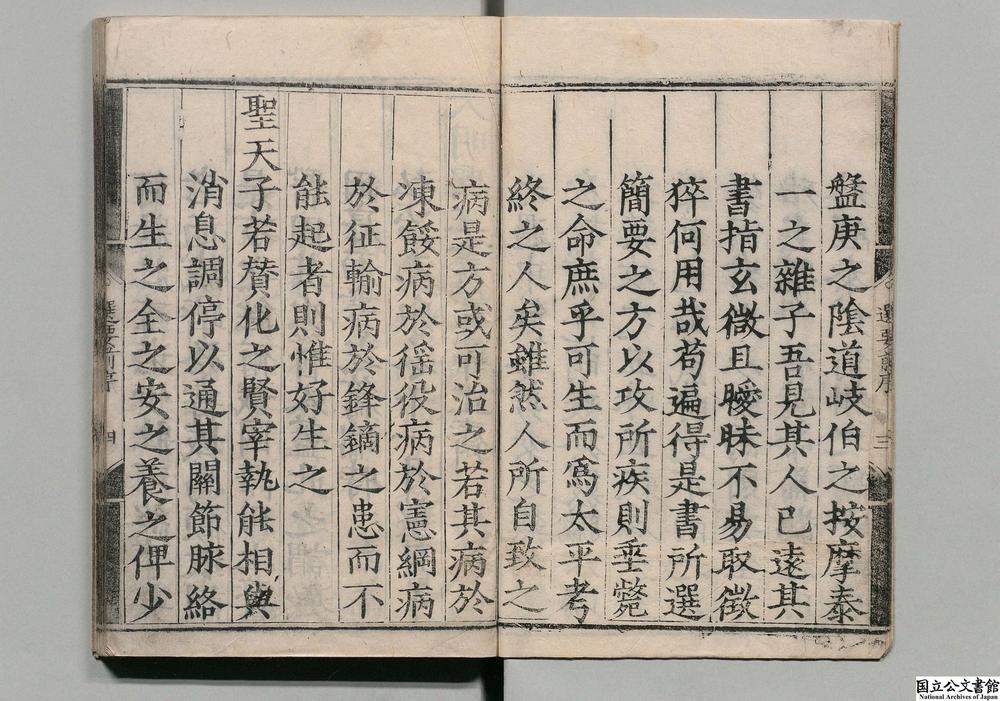 盤庚之陰道岐伯之按摩泰
一之雜子吾見其人已遠其
書指玄微且曖昧不易取徵
猝何用哉苟遍得是書所選
簡要之方以攻所疾則垂斃
之命庶乎可生而爲太平考
終之人矣雖然人所自致之
病是方或可治之若其病於
凍餒病於徭役病於憲綱病
於征輸病於鋒鏑之患而不
能起者則惟好生之
聖天子若賛化之賢宰執能相與
消息調停以通其關節脉絡
而生之全之安之養之俾少
三
四
国立公文書館
National Archives of Japan